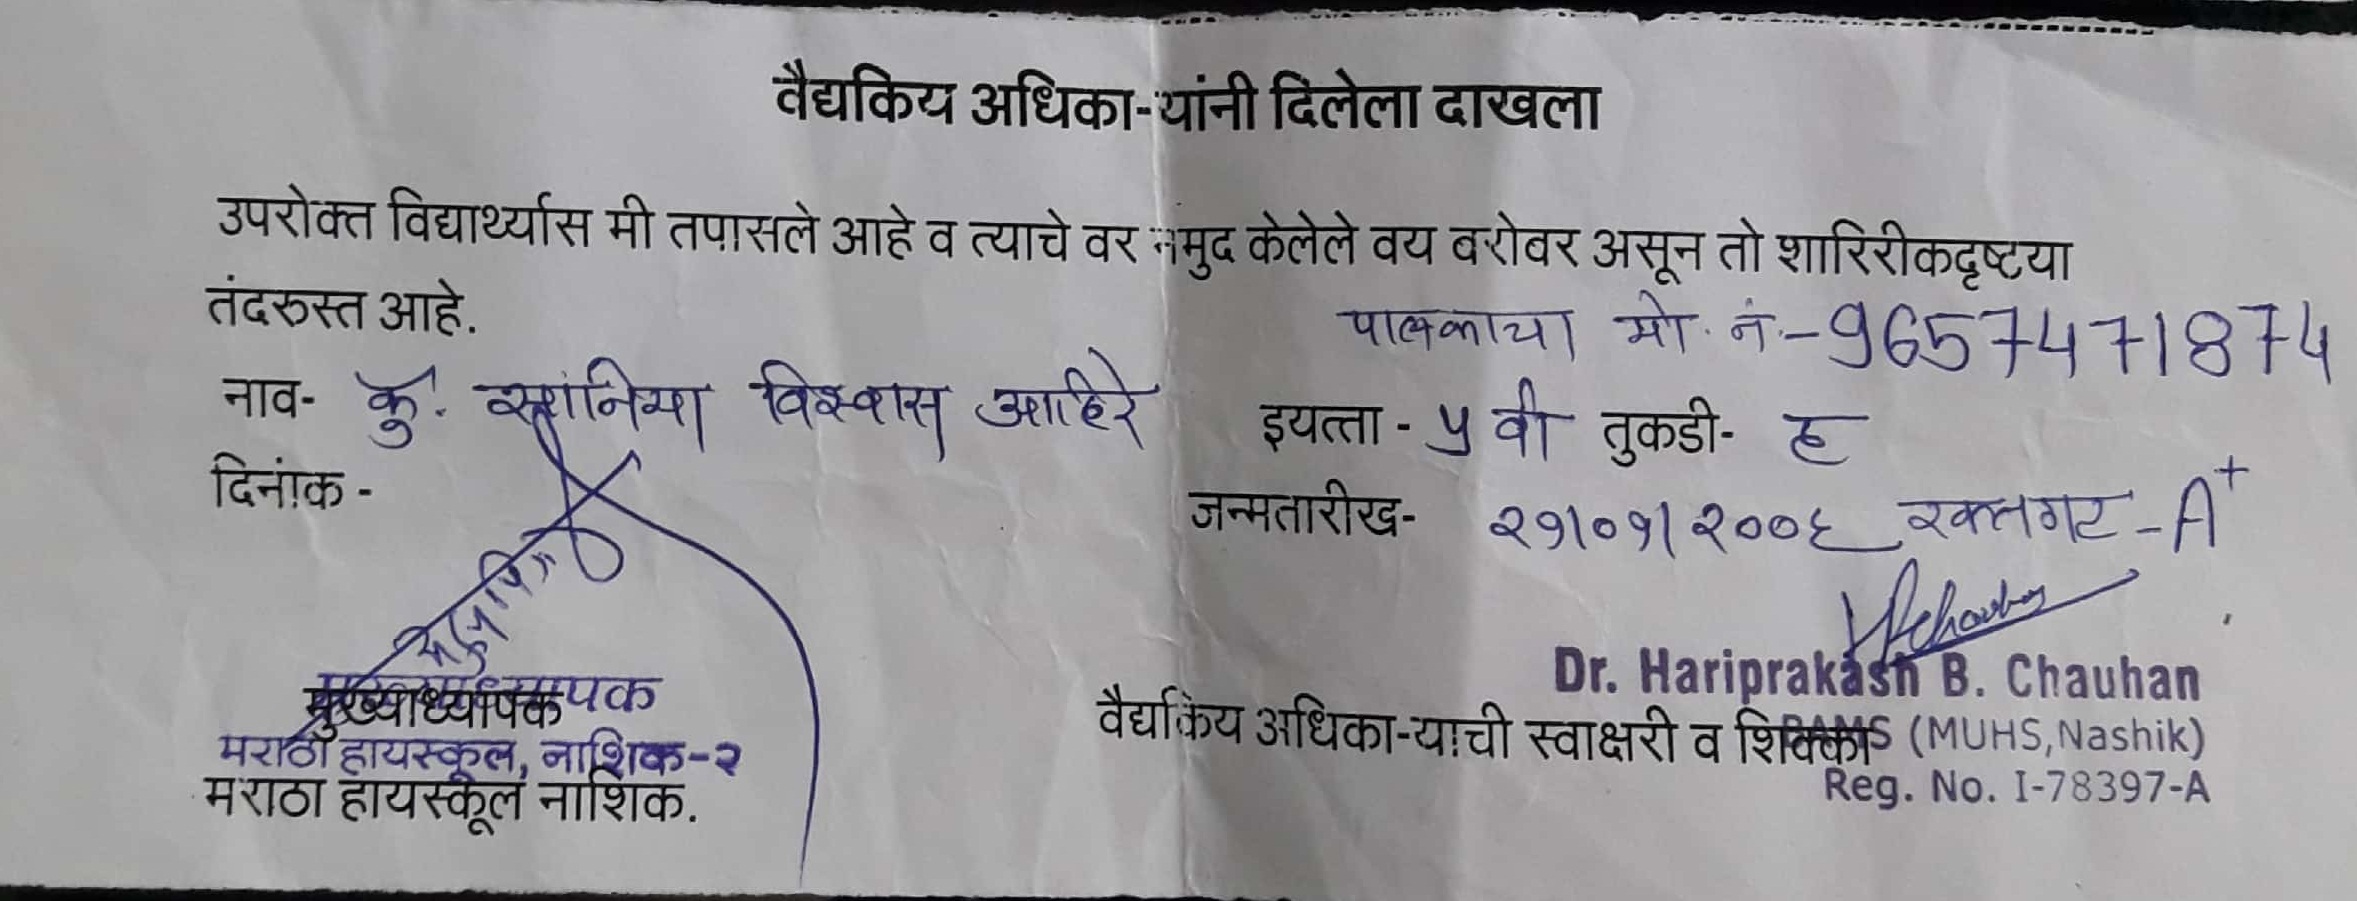 वैद्यकिय अधिका-यांनी दिलेला दाखला
उपरोक्त विद्यार्थ्यास मी तपासले आहे व त्याचे वर नमुद केलेले वय बरोबर असून तो शारिरीकदृष्टया
तंदरुस्त आहे.
पालकाचा मो. नं.-9657471874
नाव- कु. सानिया विश्वास आहिरे इयत्ता - ५ वी तुकडी- ह
दिनांक -
जन्मतारीख- २१/०१/२००६ रक्तगट - A+
Dr. Hariprakash B. Chauhan
मुख्याध्यापक
मुख्याध्यापक
वैद्यकिय अधिका-याची स्वाक्षरी व शिक्का
BAMS (MUHS,Nashik)
मराठा हायस्कूल, नाशिक-२
मराठा हायस्कूल नाशिक.
Reg. No. I-78397-A